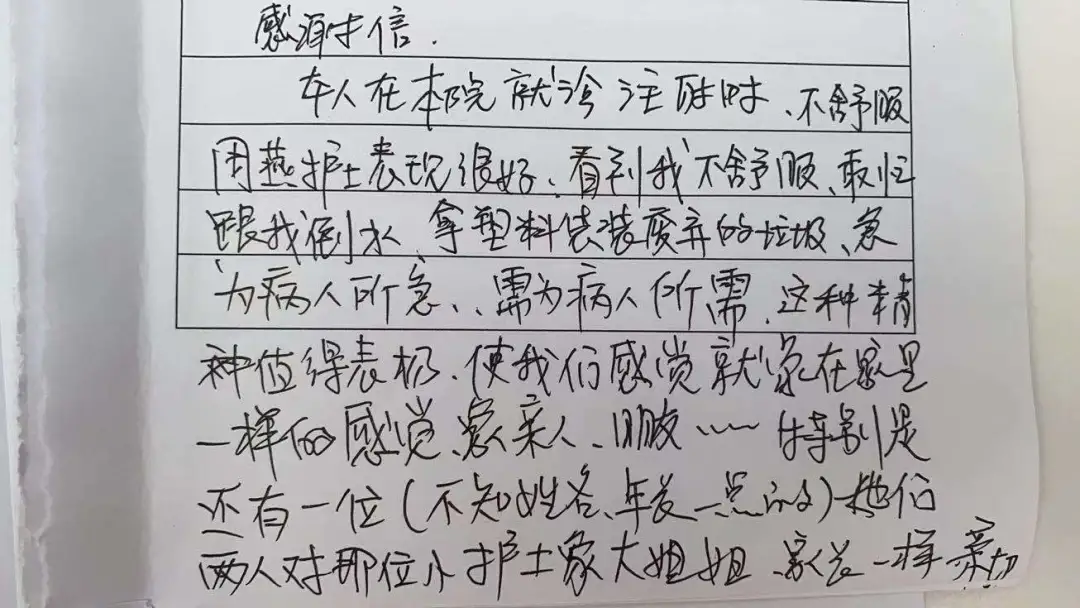 感谢信.
本人在本院就诊注射时、不舒服
周燕护士表现很好、看到我不舒服、敢忙
跟我倒水、拿塑料袋装废弃的垃圾、急
为病人所急、、需为病人所需、这种精
神值得表扬、使我们感觉就象在家里
一样的感觉、象亲人、朋友……特别是
还有一位(不知姓名、年长一点的)她们
两人对那位小护士象大姐姐、家长一样亲切